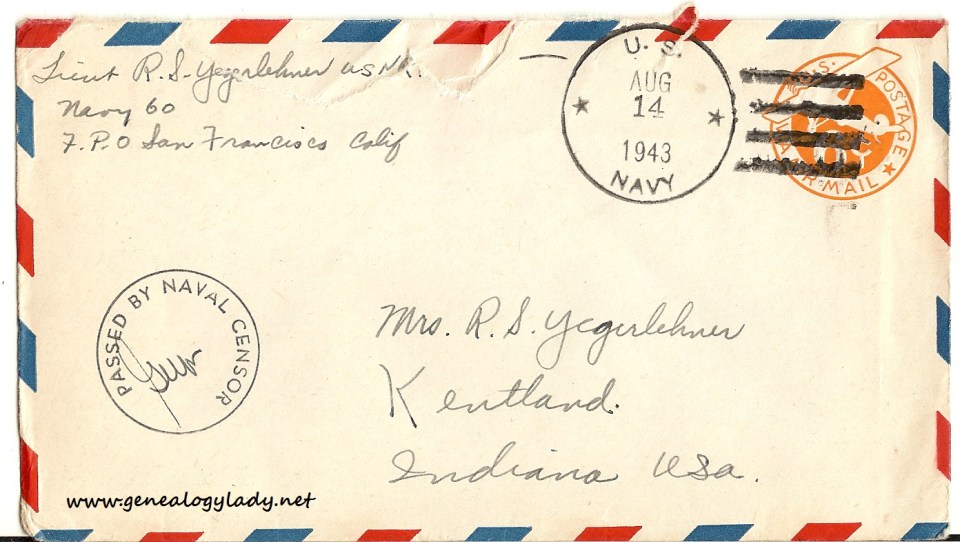 Lieut R. S. Yegerlehner USNR.
Navy 60
F.P.O San Francisco Calif
U. S.
AUG
14
1943
NAVY
U.S. POSTAGE
VIA AIR MAIL
PASSED BY NAVAL CENSOR
Mrs. R. S. Yegerlehner
Kentland.
Indiana USA.
www.genealogylady.net